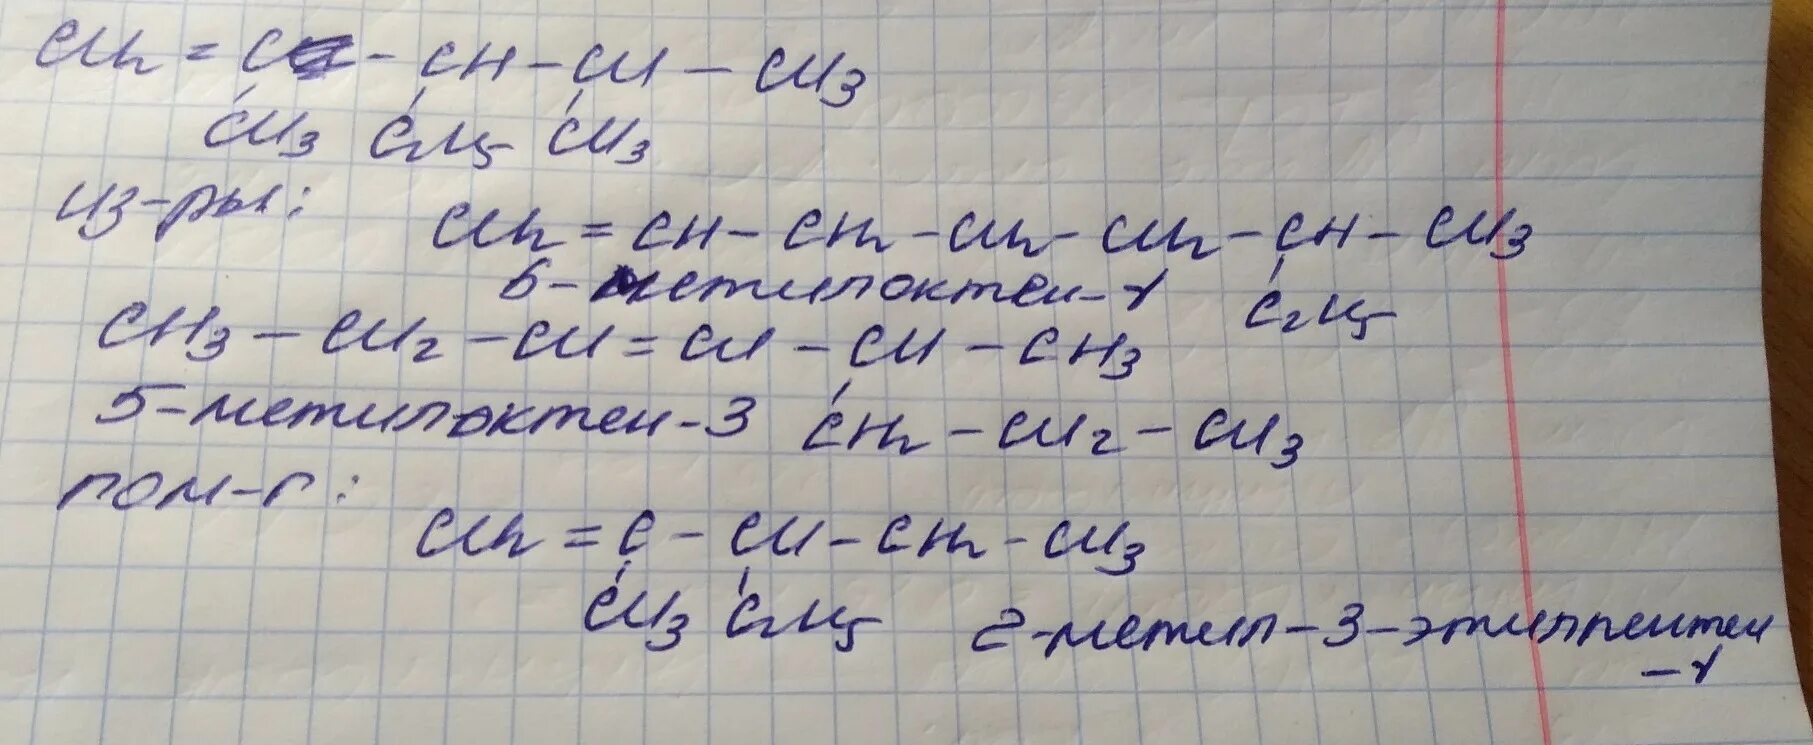 CH2 = C - CH - CH - CH3
CH3 C2H5 CH3
из-ры: CH2 = CH - CH2 - CH2 - CH2 - CH - CH3
6-метилоктен-1 C2H5
CH3 - CH2 - CH = CH - CH - CH3
5-метилоктен-3 CH2 - CH2 - CH3
гом-г:
CH2 = C - CH - CH2 - CH3
CH3 C2H5 2-метил-3-этилпентен
-1